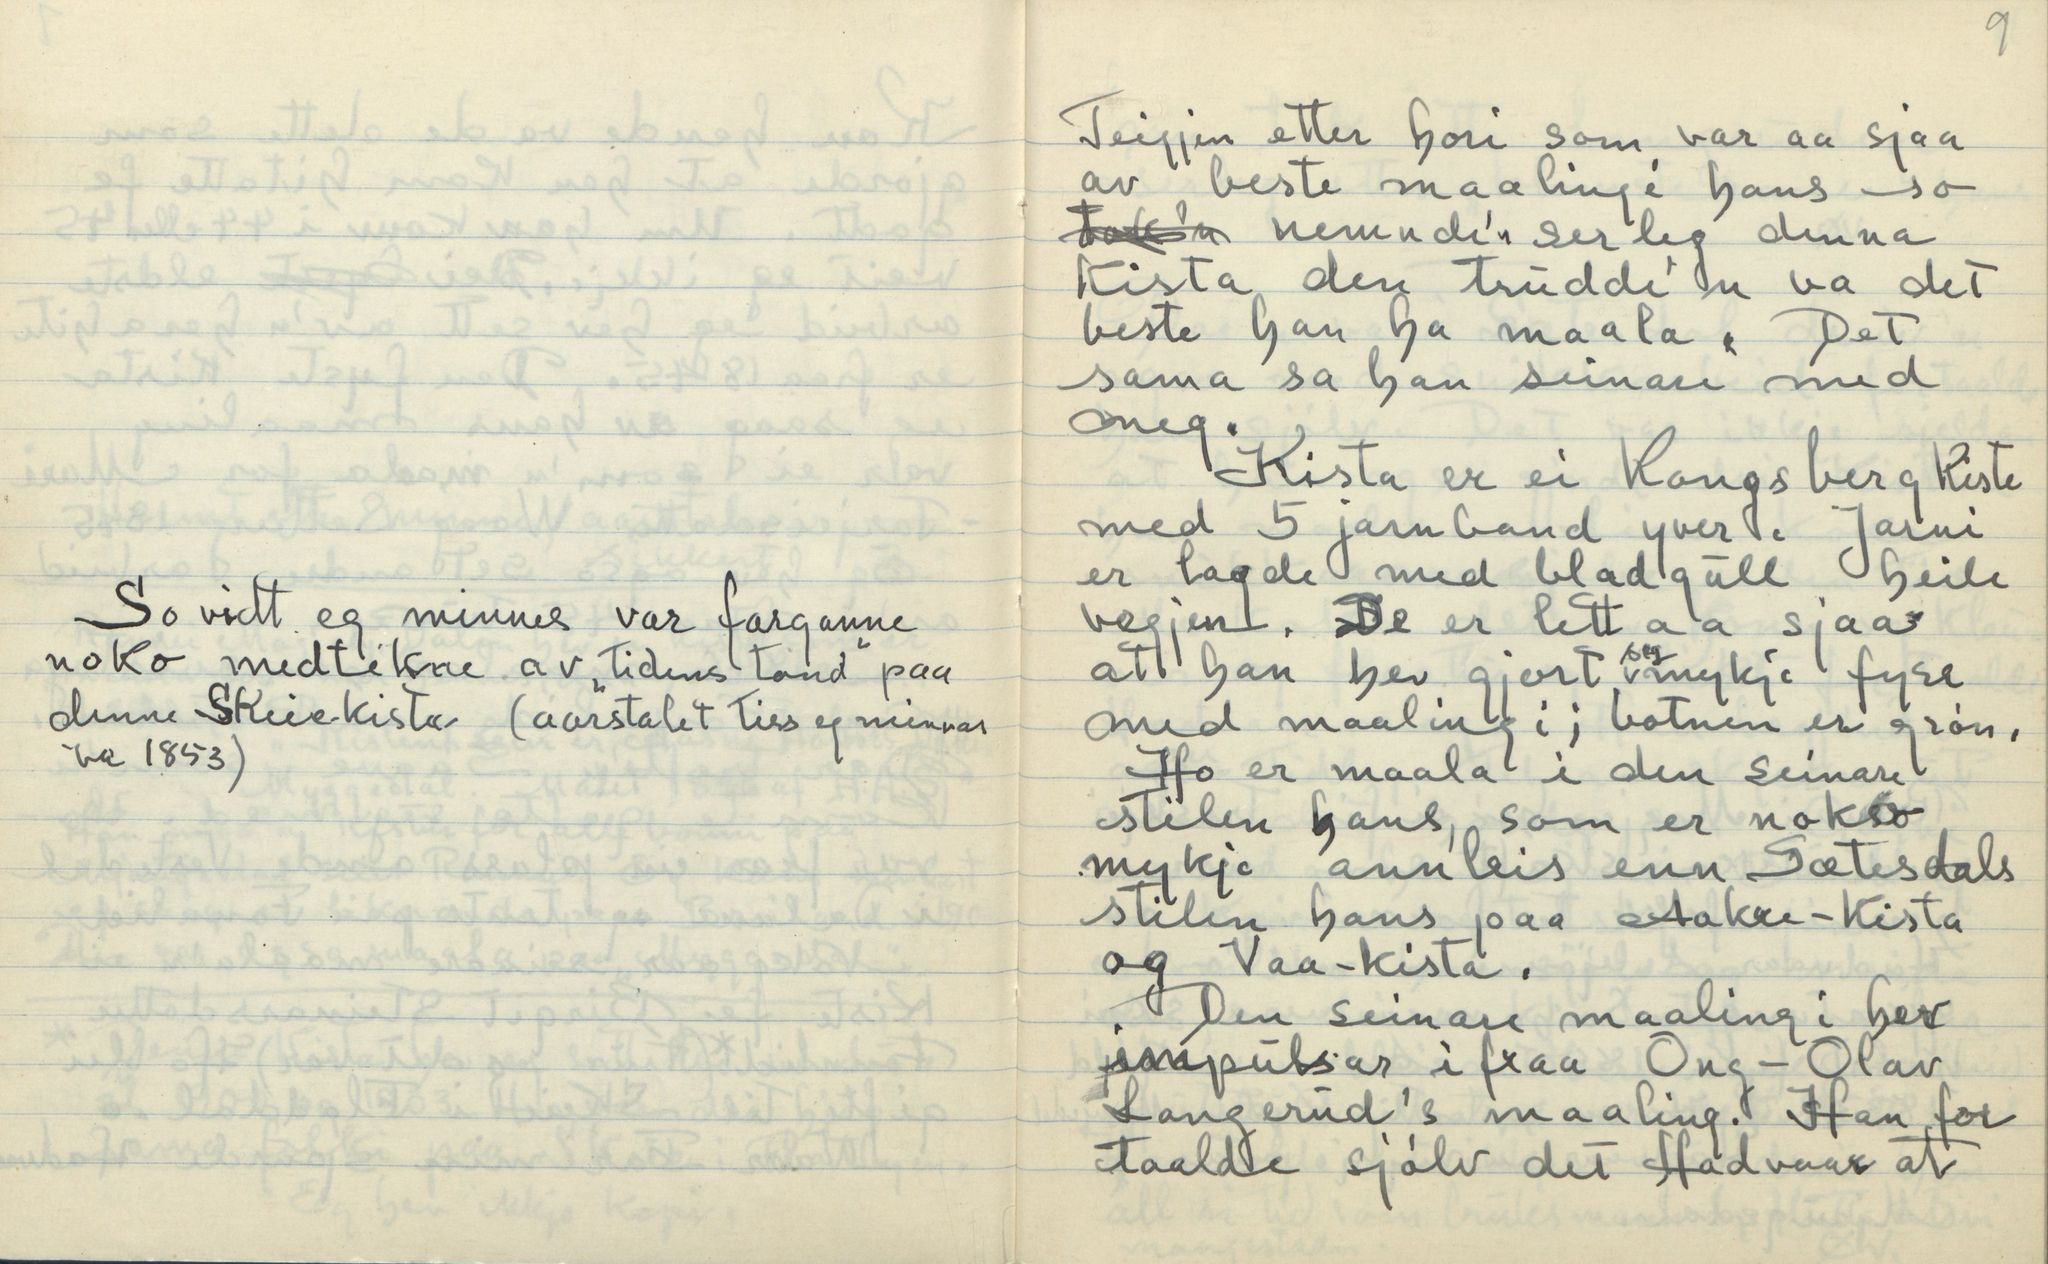 So vidt eg minnes var farganne
noko medtekne av „tidens tand" paa
denne Skeie-kista (aarstalet tiss eg minnas
va 1853)
9
Teigjen etter hori som var aa sjaa
av beste maalingi hans so
nemnde'n serleg denna
Kista den trudde'n va det
beste han ha maala. Det
sama sa han seinare med
meg.
Kista er ei Kongsbergkiste
med 5 jarnband yver. Jarni
er lagde med bladgull heile
vegjen. De er lett aa sjaa
at han hev gjort seg mykje fyre
med maalingi; botnen er grön.
Ho er maala i den seinare
stilen hans, som er nokso
mykje annleis enn Sætesdals
stilen hans paa Aakre-Kista
og Vaa-kista.
Den seinare maalingi hev
impulsar ifraa Ong-Olav
Langerud's maaling. Han for
taalde sjölv det Hadvaar at